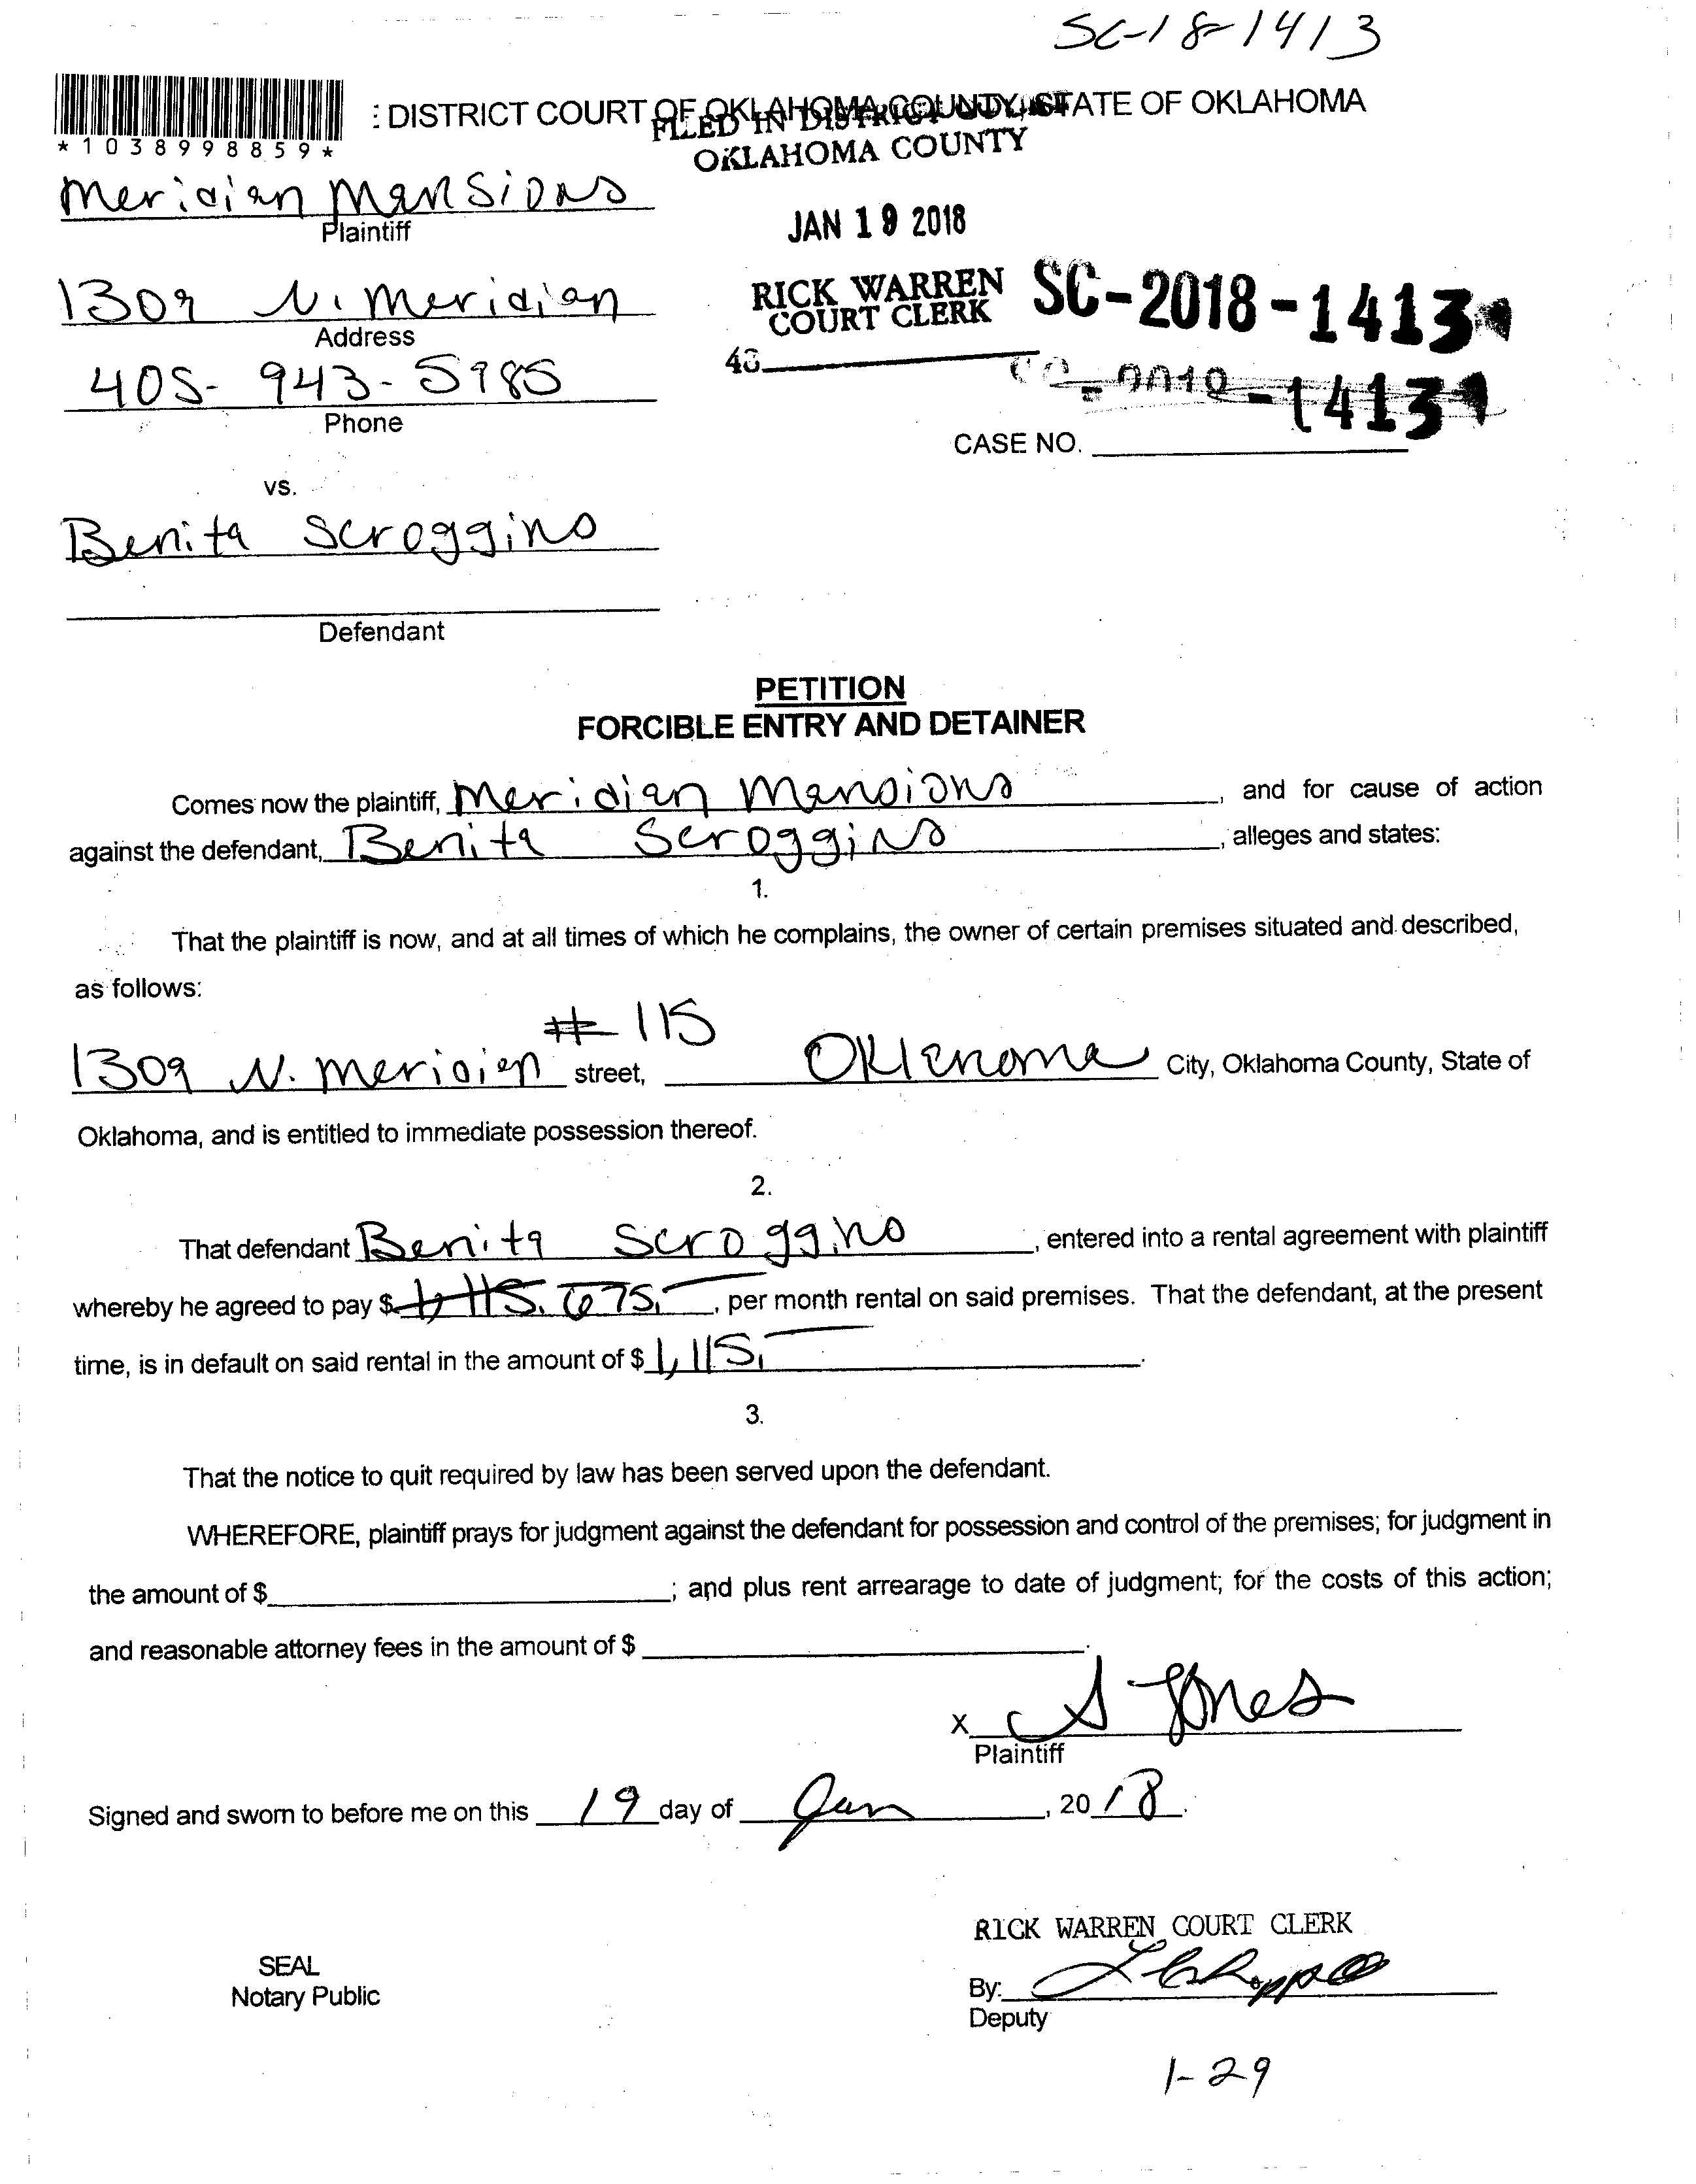 SC-18-1413
: DISTRICT COURT OF OKLAHOMA COUNTY, STATE OF OKLAHOMA
*1038998859*
FILED IN DISTRICT COURT
OKLAHOMA COUNTY
Meridian Mansions
Plaintiff
JAN 19 2018
1309 N. Meridian
Address
RICK WARREN
COURT CLERK
SC-2018-1413
405-943-5985
Phone
43
-1413
CASE NO.
vs.
Benita Scroggins
Defendant
PETITION
FORCIBLE ENTRY AND DETAINER
Comes now the plaintiff, Meridian Mansions, and for cause of action
against the defendant, Benita Scroggins, alleges and states:
1.
That the plaintiff is now, and at all times of which he complains, the owner of certain premises situated and described,
as follows:
1309 N. Meridian #115 street, Oklahoma City, Oklahoma County, State of
Oklahoma, and is entitled to immediate possession thereof.
2.
That defendant Benita Scroggins, entered into a rental agreement with plaintiff
whereby he agreed to pay $ 1,115. 675.—, per month rental on said premises. That the defendant, at the present
time, is in default on said rental in the amount of $ 1,115.—.
3.
That the notice to quit required by law has been served upon the defendant.
WHEREFORE, plaintiff prays for judgment against the defendant for possession and control of the premises; for judgment in
the amount of $; and plus rent arrearage to date of judgment; for the costs of this action;
and reasonable attorney fees in the amount of $.
X S Jones
Plaintiff
Signed and sworn to before me on this 19 day of Jan, 2018.
RICK WARREN COURT CLERK
SEAL
Notary Public
By:
Deputy
1-29